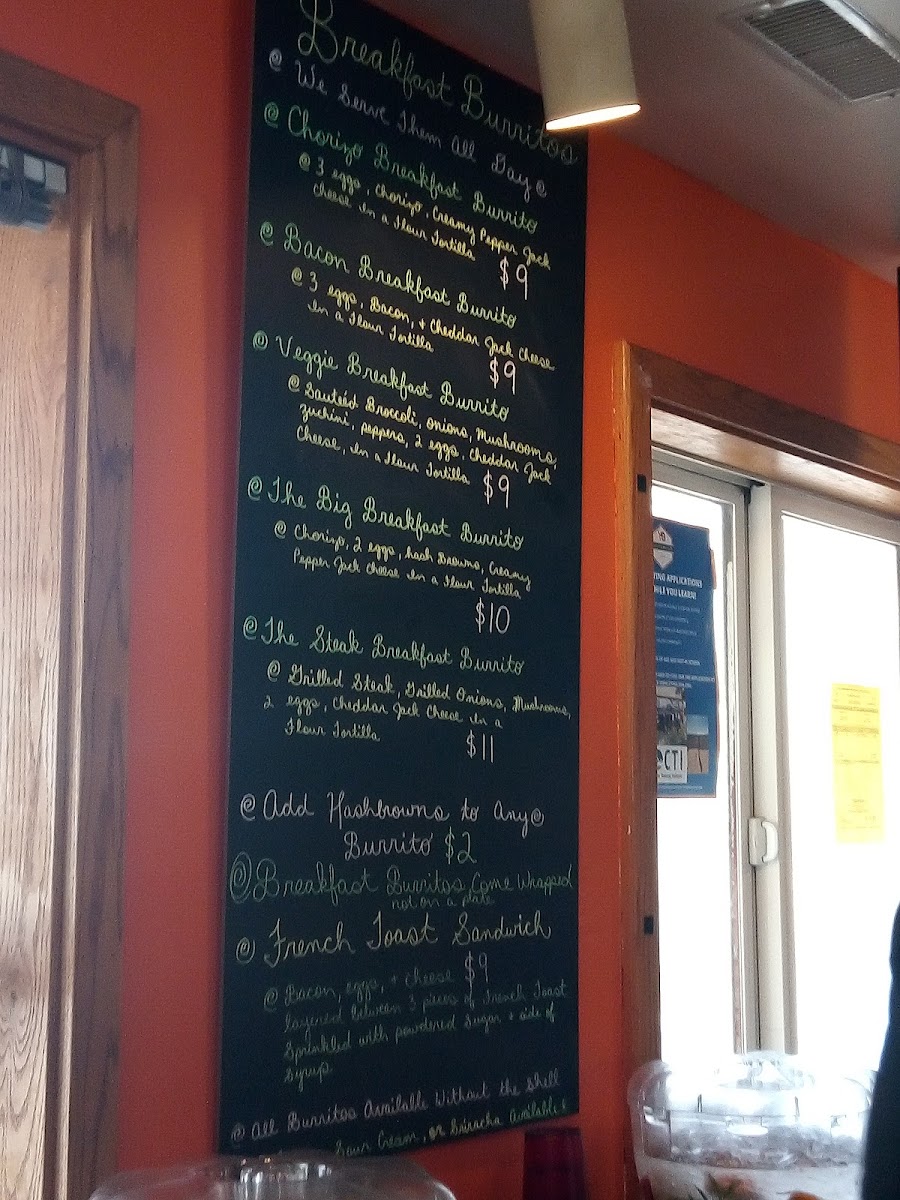 Breakfast Burritos
@ We Serve Them All Day @
@ Chorizo Breakfast Burrito
@ 3 eggs, Chorizo, Creamy Pepper Jack
Cheese In a Flour Tortilla
$9
@ Bacon Breakfast Burrito
@ 3 eggs, Bacon, + Cheddar Jack Cheese
In a Flour Tortilla
$9
@ Veggie Breakfast Burrito
@ Sauteéd Broccoli, onions, Mushrooms,
zuchini, peppers, 2 eggs, Cheddar Jack
Cheese, In a Flour Tortilla $9
@ The Big Breakfast Burrito
@ Chorizo, 2 eggs, hash Browns, Creamy
Pepper Jack Cheese In a Flour Tortilla
$10
@ The Steak Breakfast Burrito
@ Grilled Steak, Grilled Onions, Mushrooms,
2 eggs, Cheddar Jack Cheese In a
Flour Tortilla $11
@ Add Hashbrowns to Any @
Burrito $2
@ Breakfast Burritos Come Wrapped
not on a plate
@ French Toast Sandwich
$9
@ Bacon, eggs, + cheese
layered between 3 pieces of French Toast
Sprinkled with powdered Sugar + side of
Syrup.
@ All Burritos Available Without the Shell
Sour Cream, or Sriracha Available
APPLICATIONS
YOU LEARN!
CTI